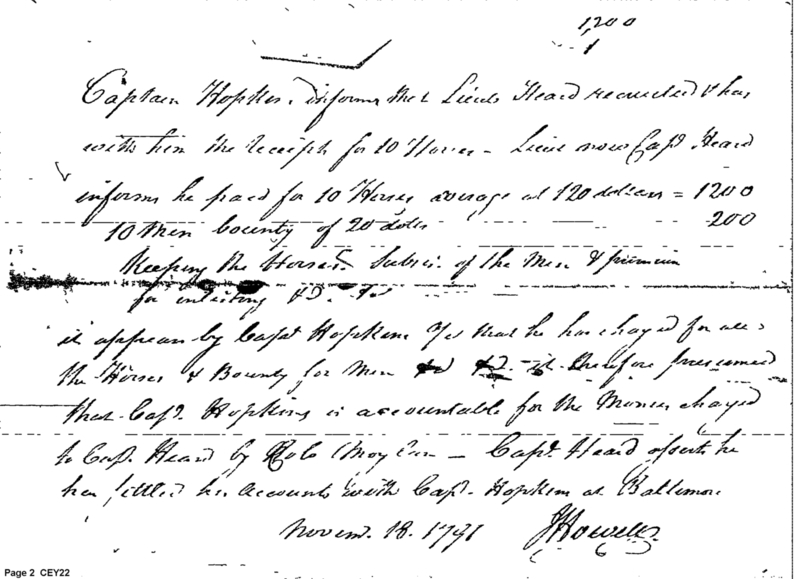 1,200
1
Captain Hopkins informs that Lieut Heard recruited & has
with him the receipt for 10 Horses – Lieut now Capt Heard
informs he paid for 10 Horses average at 120 dollars = 1200
10 Men bounty of 20 dolls 200
Keeping the Horses Subsis. of the Men & premium
for inlisting &c. &c
it appears by Capt Hopkins that he has chayed for all
the Horses & Bounty for Men &c &c it therefore presumed
that Capt. Hopkins is accountable for the Monies chayed
to Capt. Heard by Colo Moylan – Capt. Heard asserts he
has settled his Accounts with Capt. Hopkins at Baltimore
Novem. 18. 1791 JHowell
Page 2 CEY22